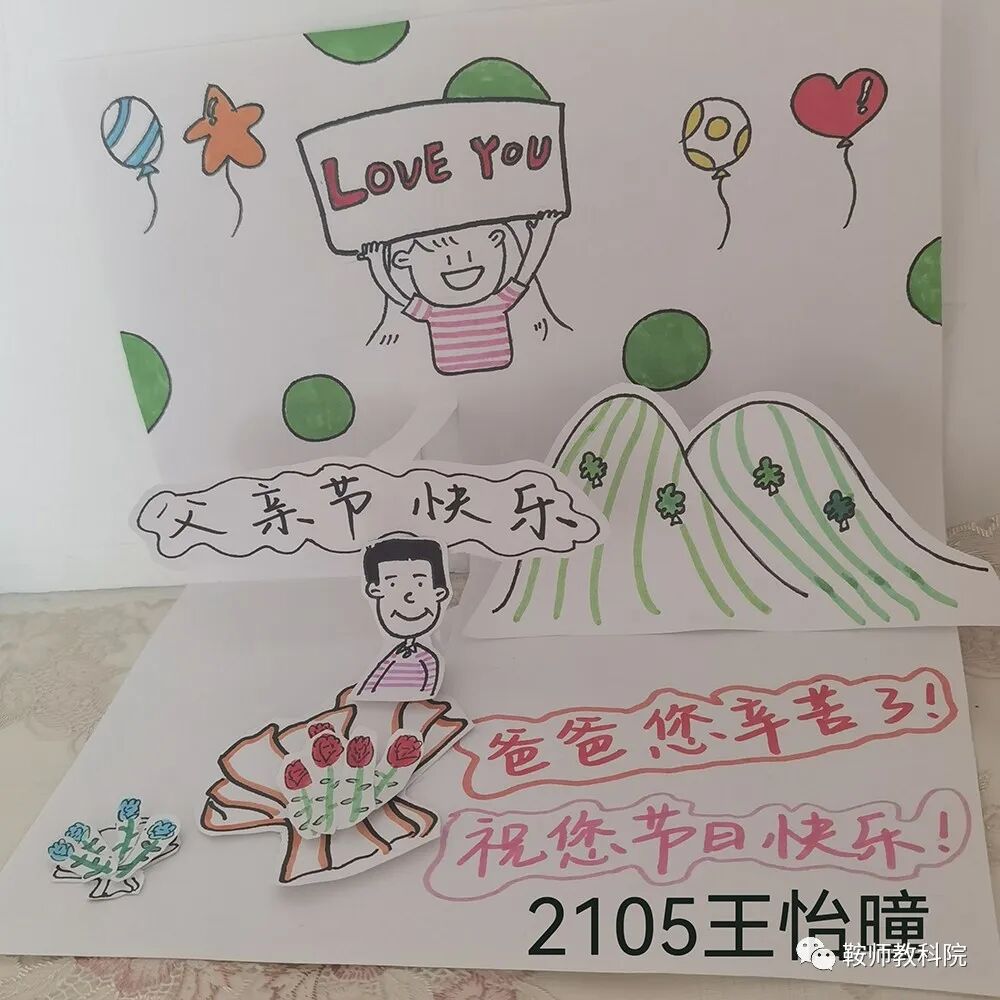 LOVE YOU
父亲节快乐
爸爸您辛苦了!
祝您节日快乐!
2105王怡曈
鞍师教科院